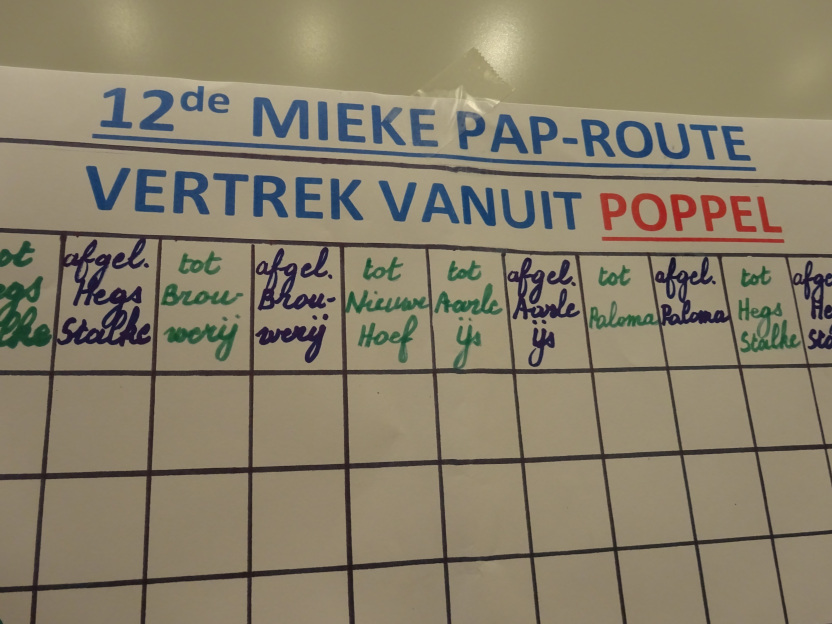 12de MIEKE PAP-ROUTE
VERTREK VANUIT POPPEL
afgel.
Hegs
Stalke
tot
Brou-
werij
afgel.
Brou-
werij
tot
Nieuwe
Hoef
tot
Aarle
ijs
afgel.
Aarle
ijs
tot
Paloma
afgel.
Paloma
tot
Hegs
Stalke